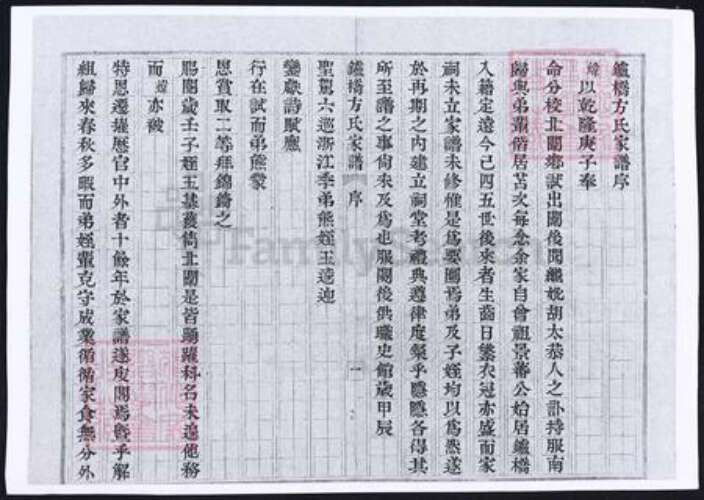 鑪橋方氏家譜序
煒以乾隆庚子奉
命分校北闈鄉試出闈後聞繼妣胡太恭人之訃持服南
歸與弟輩偕居苫次每念余家自曾祖景蕃公始居鑪橋
入籍定遠今已四五世後來者生齒日繁衣冠亦盛而家
祠未立家譜未修惟是爲要圖焉弟及子姪均以爲然遂
於再期之內建立祠堂考禮典遵律度粲乎隱隱各得其
所至譜之事尙未及爲也服闋後供職史館歲甲辰
鑪橋方氏家譜 序 一
聖駕六巡浙江季弟熊姪玉逵迎
鑾獻詩賦應
行在試而弟熊蒙
恩賞取二等拜錦綺之
賜閱歲壬子姪玉基獲雋北闈是皆踴躍科名未遑他務
而煒亦被
特恩遷擢歷官中外者十餘年於家譜遂庋閣焉曁乎解
組歸來春秋多暇而弟姪輩克守成業循循家食無分外